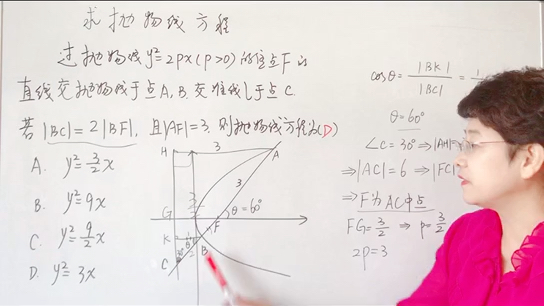 求抛物线方程
过抛物线y²=2px(p>0)的焦点F的
直线交抛物线于点A,B,交准线l于点C.
若|BC|=2|BF|,且|AF|=3,则抛物线方程为(D)
A. y²=3/2x
B. y²=9x
C. y²=9/2x
D. y²=3x
H
3
A
3
G
θ=60°
F
K
B
C
cosθ=|BK|/|BC|=1/
θ=60°
∠C=30°⇒|AH|=
⇒|AC|=6⇒|FC|
⇒F为AC中点
FG=3/2⇒p=3/2
2p=3